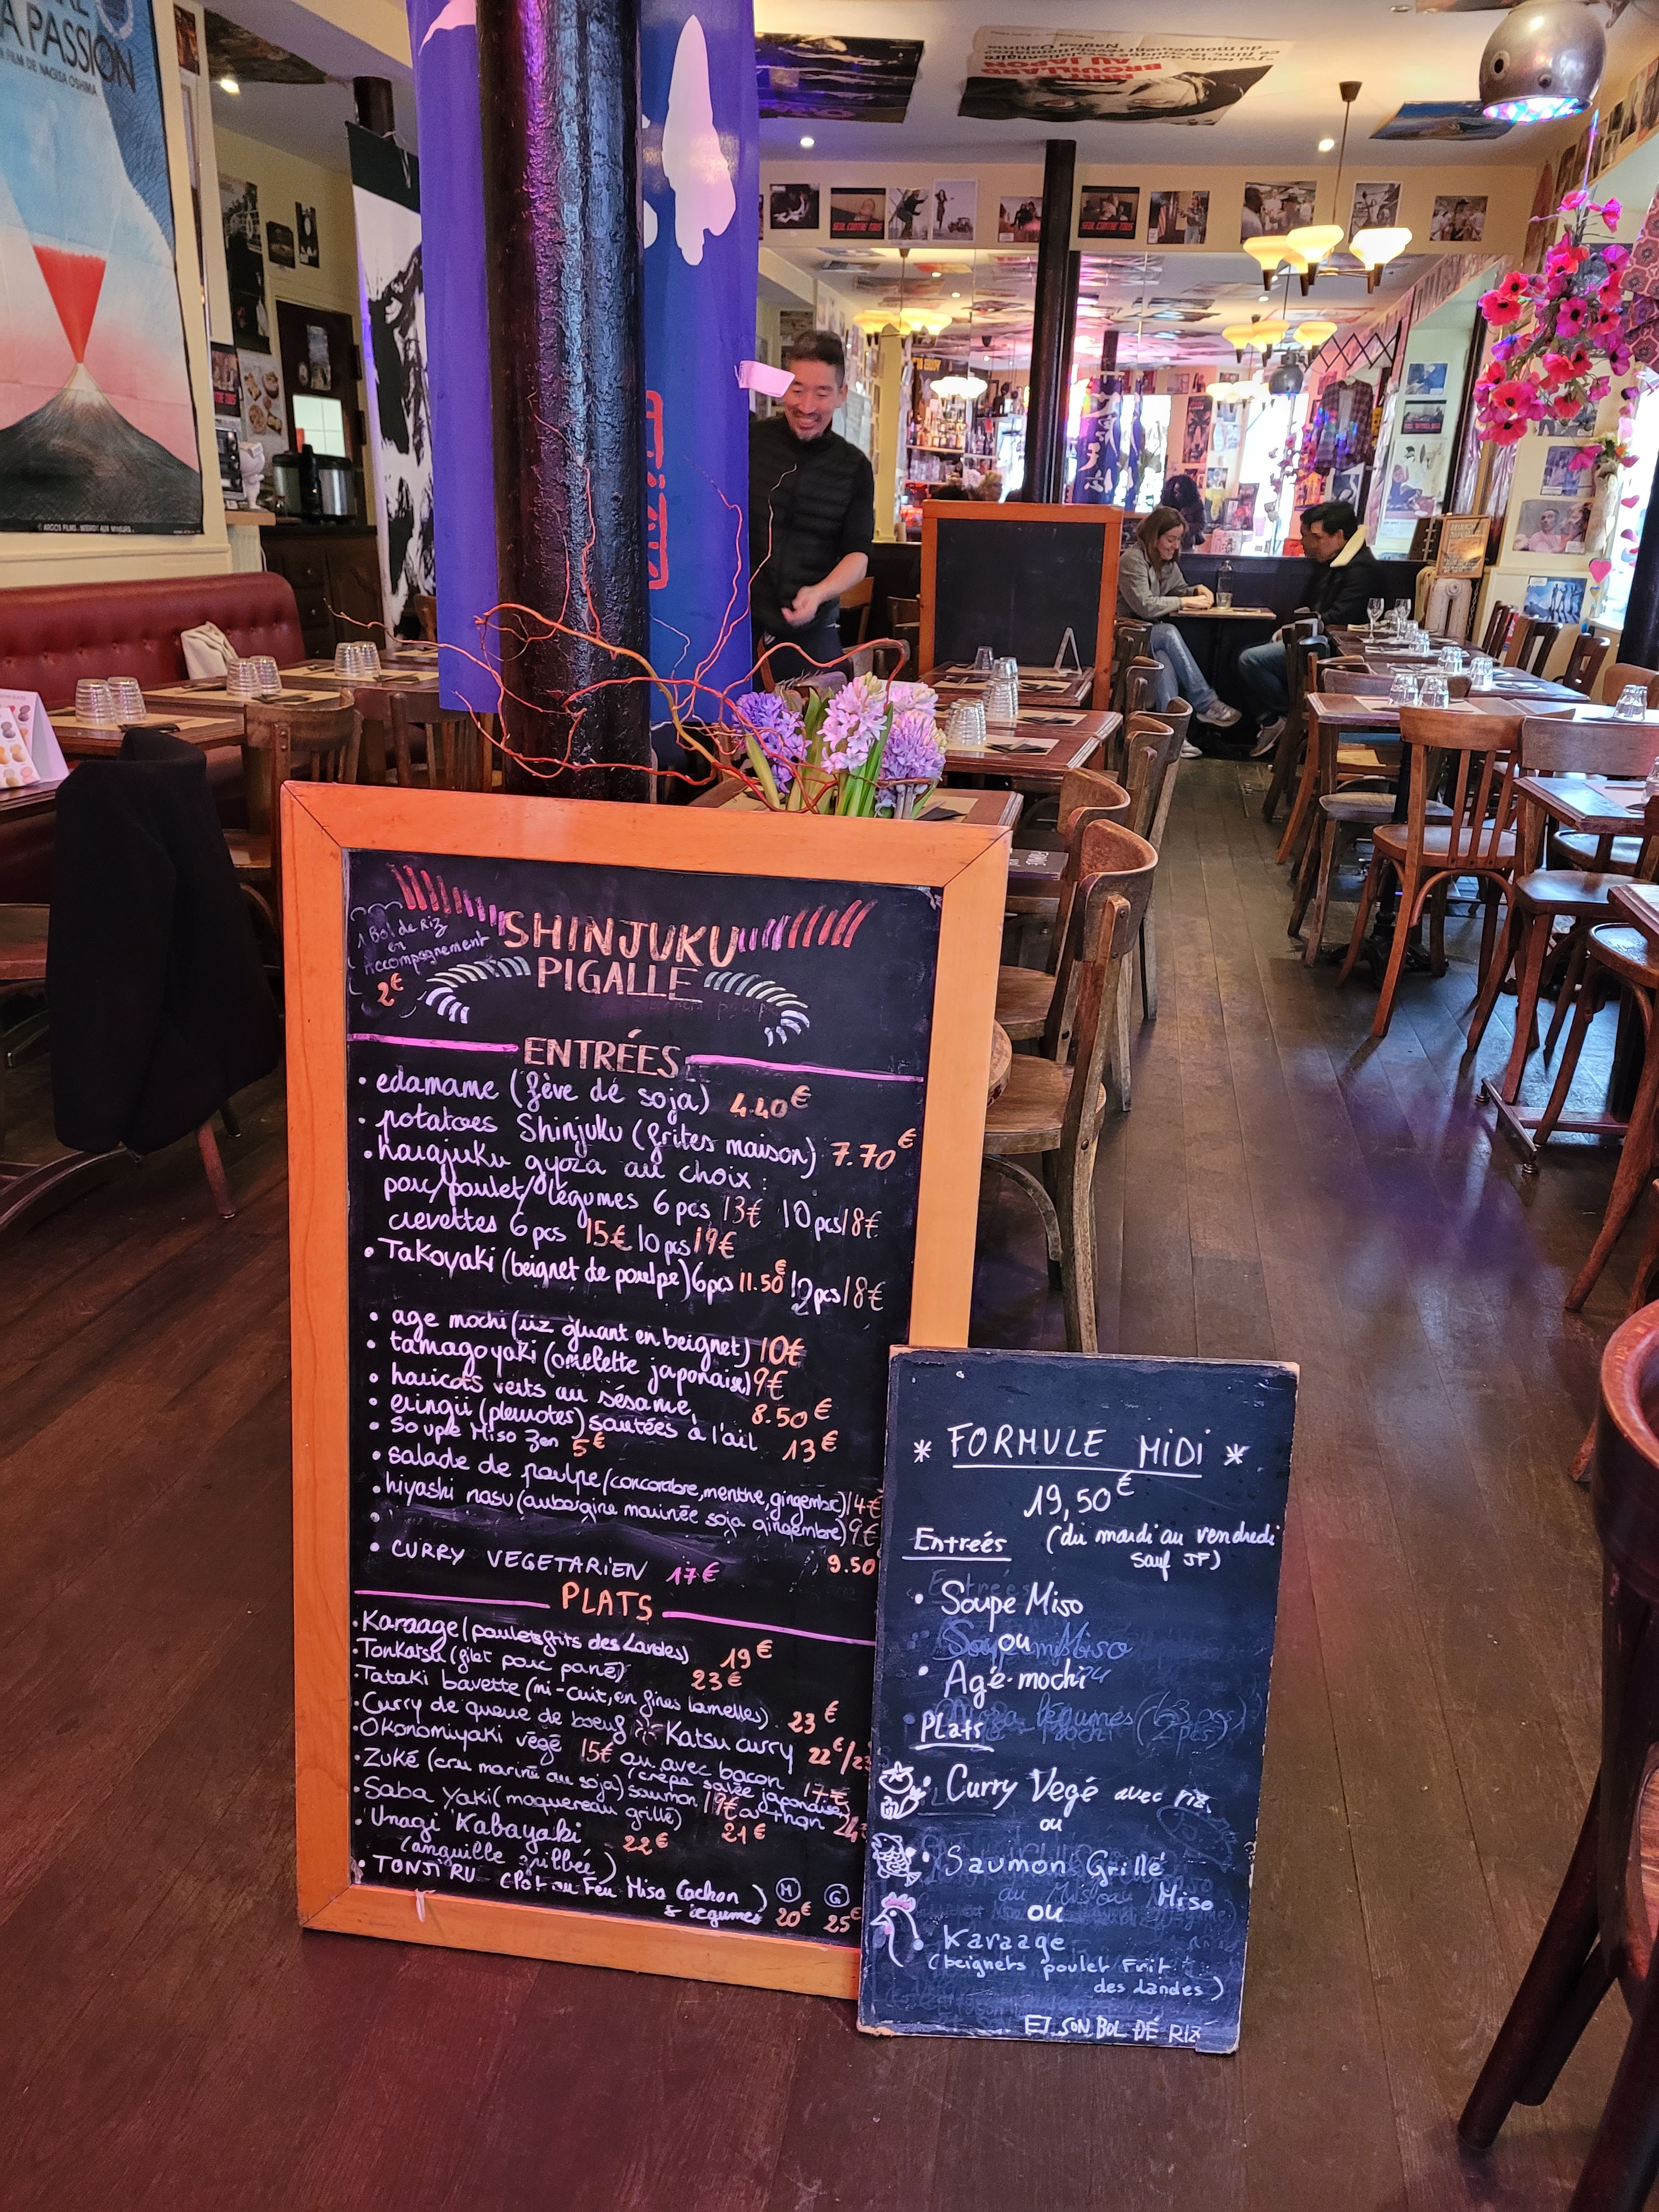 A PASSION
FILM DE NAGISA OSHIMA
© ARGOS FILMS - INTERDIT AUX MINEURS
BROUILLARD
AU JAPON
Nagisa Oshima
SEUL CONTRE TOUS
SEUL CONTRE TOUS
1 Bol de Riz
en
Accompagnement
2€
SHINJUKU
PIGALLE
ENTRÉES
• edamame (fève dé soja) 4.40€
• potatoes Shinjuku (frites maison) 7.70€
• harajuku gyoza au choix :
porc/poulet/légumes 6 pcs 13€ 10 pcs 18€
crevettes 6 pcs 15€ 10 pcs 19€
• Takoyaki (beignet de poulpe) 6 pcs 11.50€ 12 pcs 18€
• age mochi (riz gluant en beignet) 10€
• tamagoyaki (omelette japonaise) 9€
• haricots verts au sésame 8.50€
• eringii (pleurotes) sautées à l'ail 13€
• Soupe Miso Zen 5€
• salade de poulpe (concombre, menthe, gingembre) 14€
• hiyashi nasu (aubergine marinée soja gingembre) 9€
9.50
• CURRY VEGETARIEN 17€
PLATS
• Karaage (poulets frits des Landes) 19€
• Tonkatsu (filet porc pané) 23€
• Tataki bavette (mi-cuit, en fines lamelles) 23€
• Curry de queue de boeuf Katsu curry 22€/23
• Okonomiyaki végé 15€ ou avec bacon 17€
(crêpe salée japonaise)
• Zuké (cru mariné au soja) saumon 19€ ou thon 24€
• Saba Yaki (maquereau grillé) 21€
• Unagi Kabayaki 22€
(anguille grillée)
• TONJIRU (Pot au Feu Miso Cochon
& légumes) M 20€ G 25€
* FORMULE MIDI *
19,50€
Entreés (du mardi au vendredi
sauf JF)
• Soupe Miso
ou
• Agé-mochi
Plats
• Curry Vegé avec riz
ou
• Saumon Grillé
Miso
ou
• Karaage
(beignets poulet Frit
des Landes)
ET SON BOL DÉ RIZ